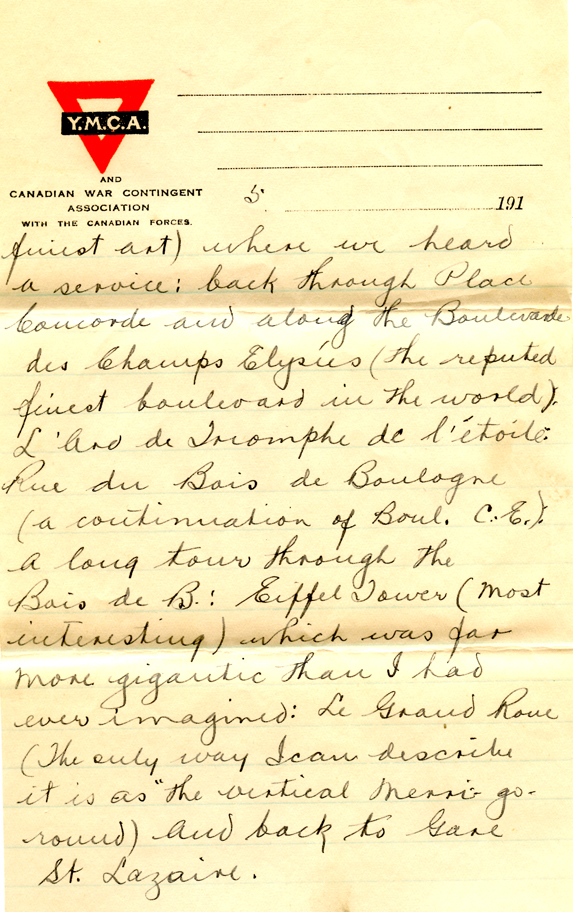 Y.M.C.A.
AND
CANADIAN WAR CONTINGENT
ASSOCIATION
WITH THE CANADIAN FORCES.
5 191
finest art) where we heard
a service: back through Place
Concorde and along the Boulevarde
des Champs Elysées (the reputed
finest boulevard in the world):
L'Arc de Triomphe de l'étoile:
Rue du Bois de Boulogne
(a continuation of Boul. C.E.):
a long tour through the
Bois de B.: Eiffel Tower (most
interesting) which was far
more gigantic than I had
ever imagined: Le Grand Roue
(The only way I can describe
it is as "the vertical merri-go-
round) and back to Gare
St. Lazaire.